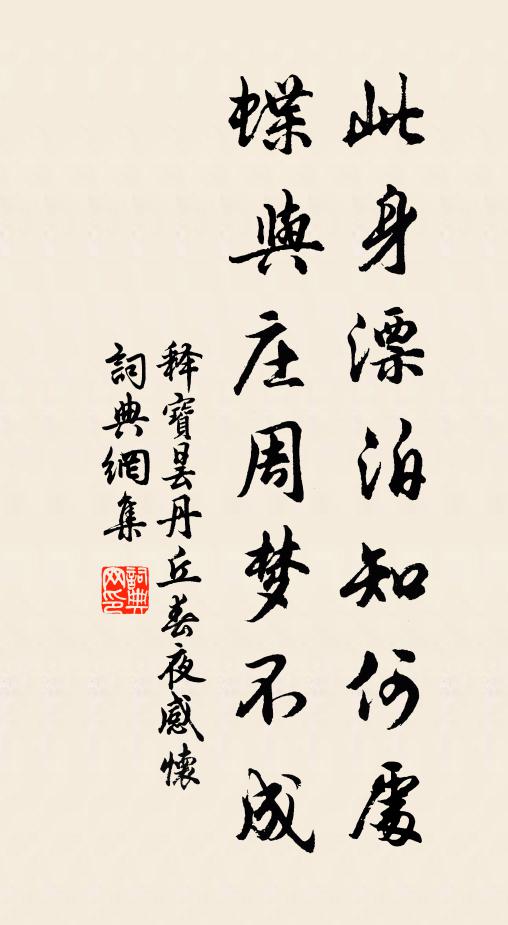 此身漂泊知何處
蝶與庄周梦不成
释寶曇丹丘春夜感懷
詞典網集
詞典網印